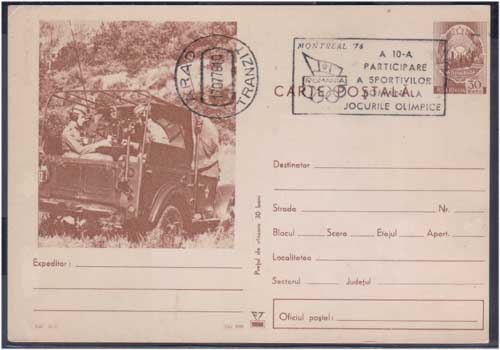 ARAD
TRANZIT
MONTREAL '76
A 10-A
PARTICIPARE
A SPORTIVILOR
ROMÂNI LA
JOCURILE OLIMPICE
ROMANIA
CARTE POSTALĂ
50
Destinator
Strada Nr.
Blocul Scara Etajul Apart.
Localitatea
Sectorul Județul
Oficiul poștal:
Expeditor:
Prețul de vînzare 30 bani